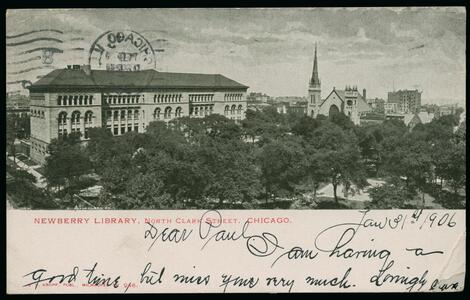 CHICAGO
NEWBERRY LIBRARY, NORTH CLARK STREET, CHICAGO.
Jan 31st 1906
Dear Paul I am having a
good time but miss you very much. Lovingly